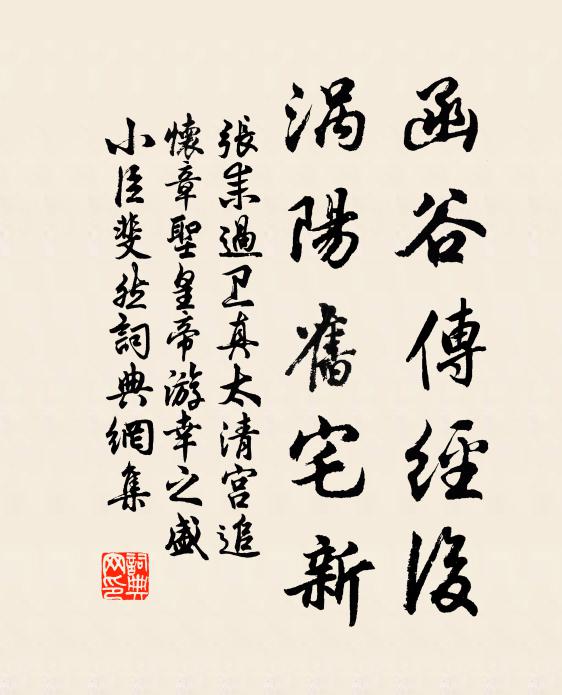 函谷傳經後
涡陽舊宅新
張耒過卫真太清宫追
懷章聖皇帝游幸之盛
小臣斐然詞典網集
詞典网印